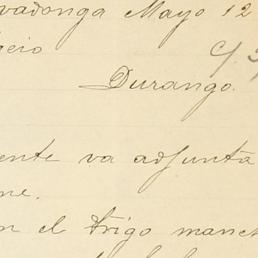 vadonga Mayo 12
geio
Durango.
ente va adjunta
ne.
n el trigo manch